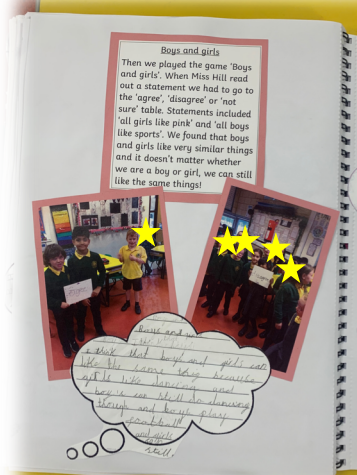 Boys and girls
Then we played the game 'Boys
and girls'. When Miss Hill read
out a statement we had to go to
the 'agree', 'disagree' or 'not
sure' table. Statements included
'all girls like pink' and 'all boys
like sports'. We found that boys
and girls like very similar things
and it doesn't matter whether
we are a boy or girl, we can still
like the same things!
Boys and
I think that boys and girls can
like the same because
girls like dancing and
boys can still do dancing
though and boys play
football
and girls
still.